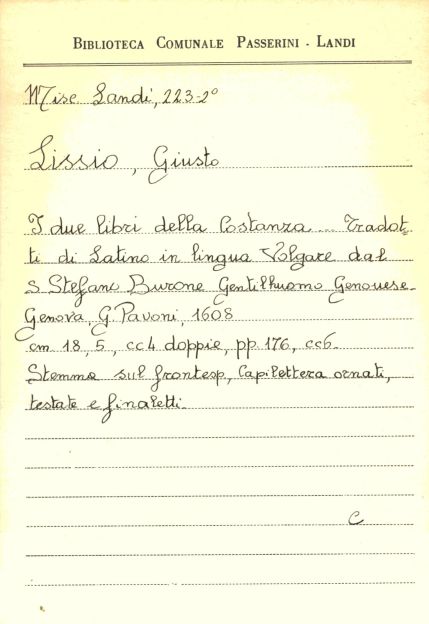 BIBLIOTECA COMUNALE PASSERINI - LANDI
Misc Landi, 223-2°
Lissio, Giusto
I due libri della Costanza ... Tradot-
ti di Latino in lingua Volgare dal
S Stefano Burone Gentilhuomo Genouese-
Genova, G. Pavoni, 1608
cm 18,5, cc4 doppie, pp 176, cc6-
Stemma sul frontesp, Capilettera ornati,
testate e finaletti-
C